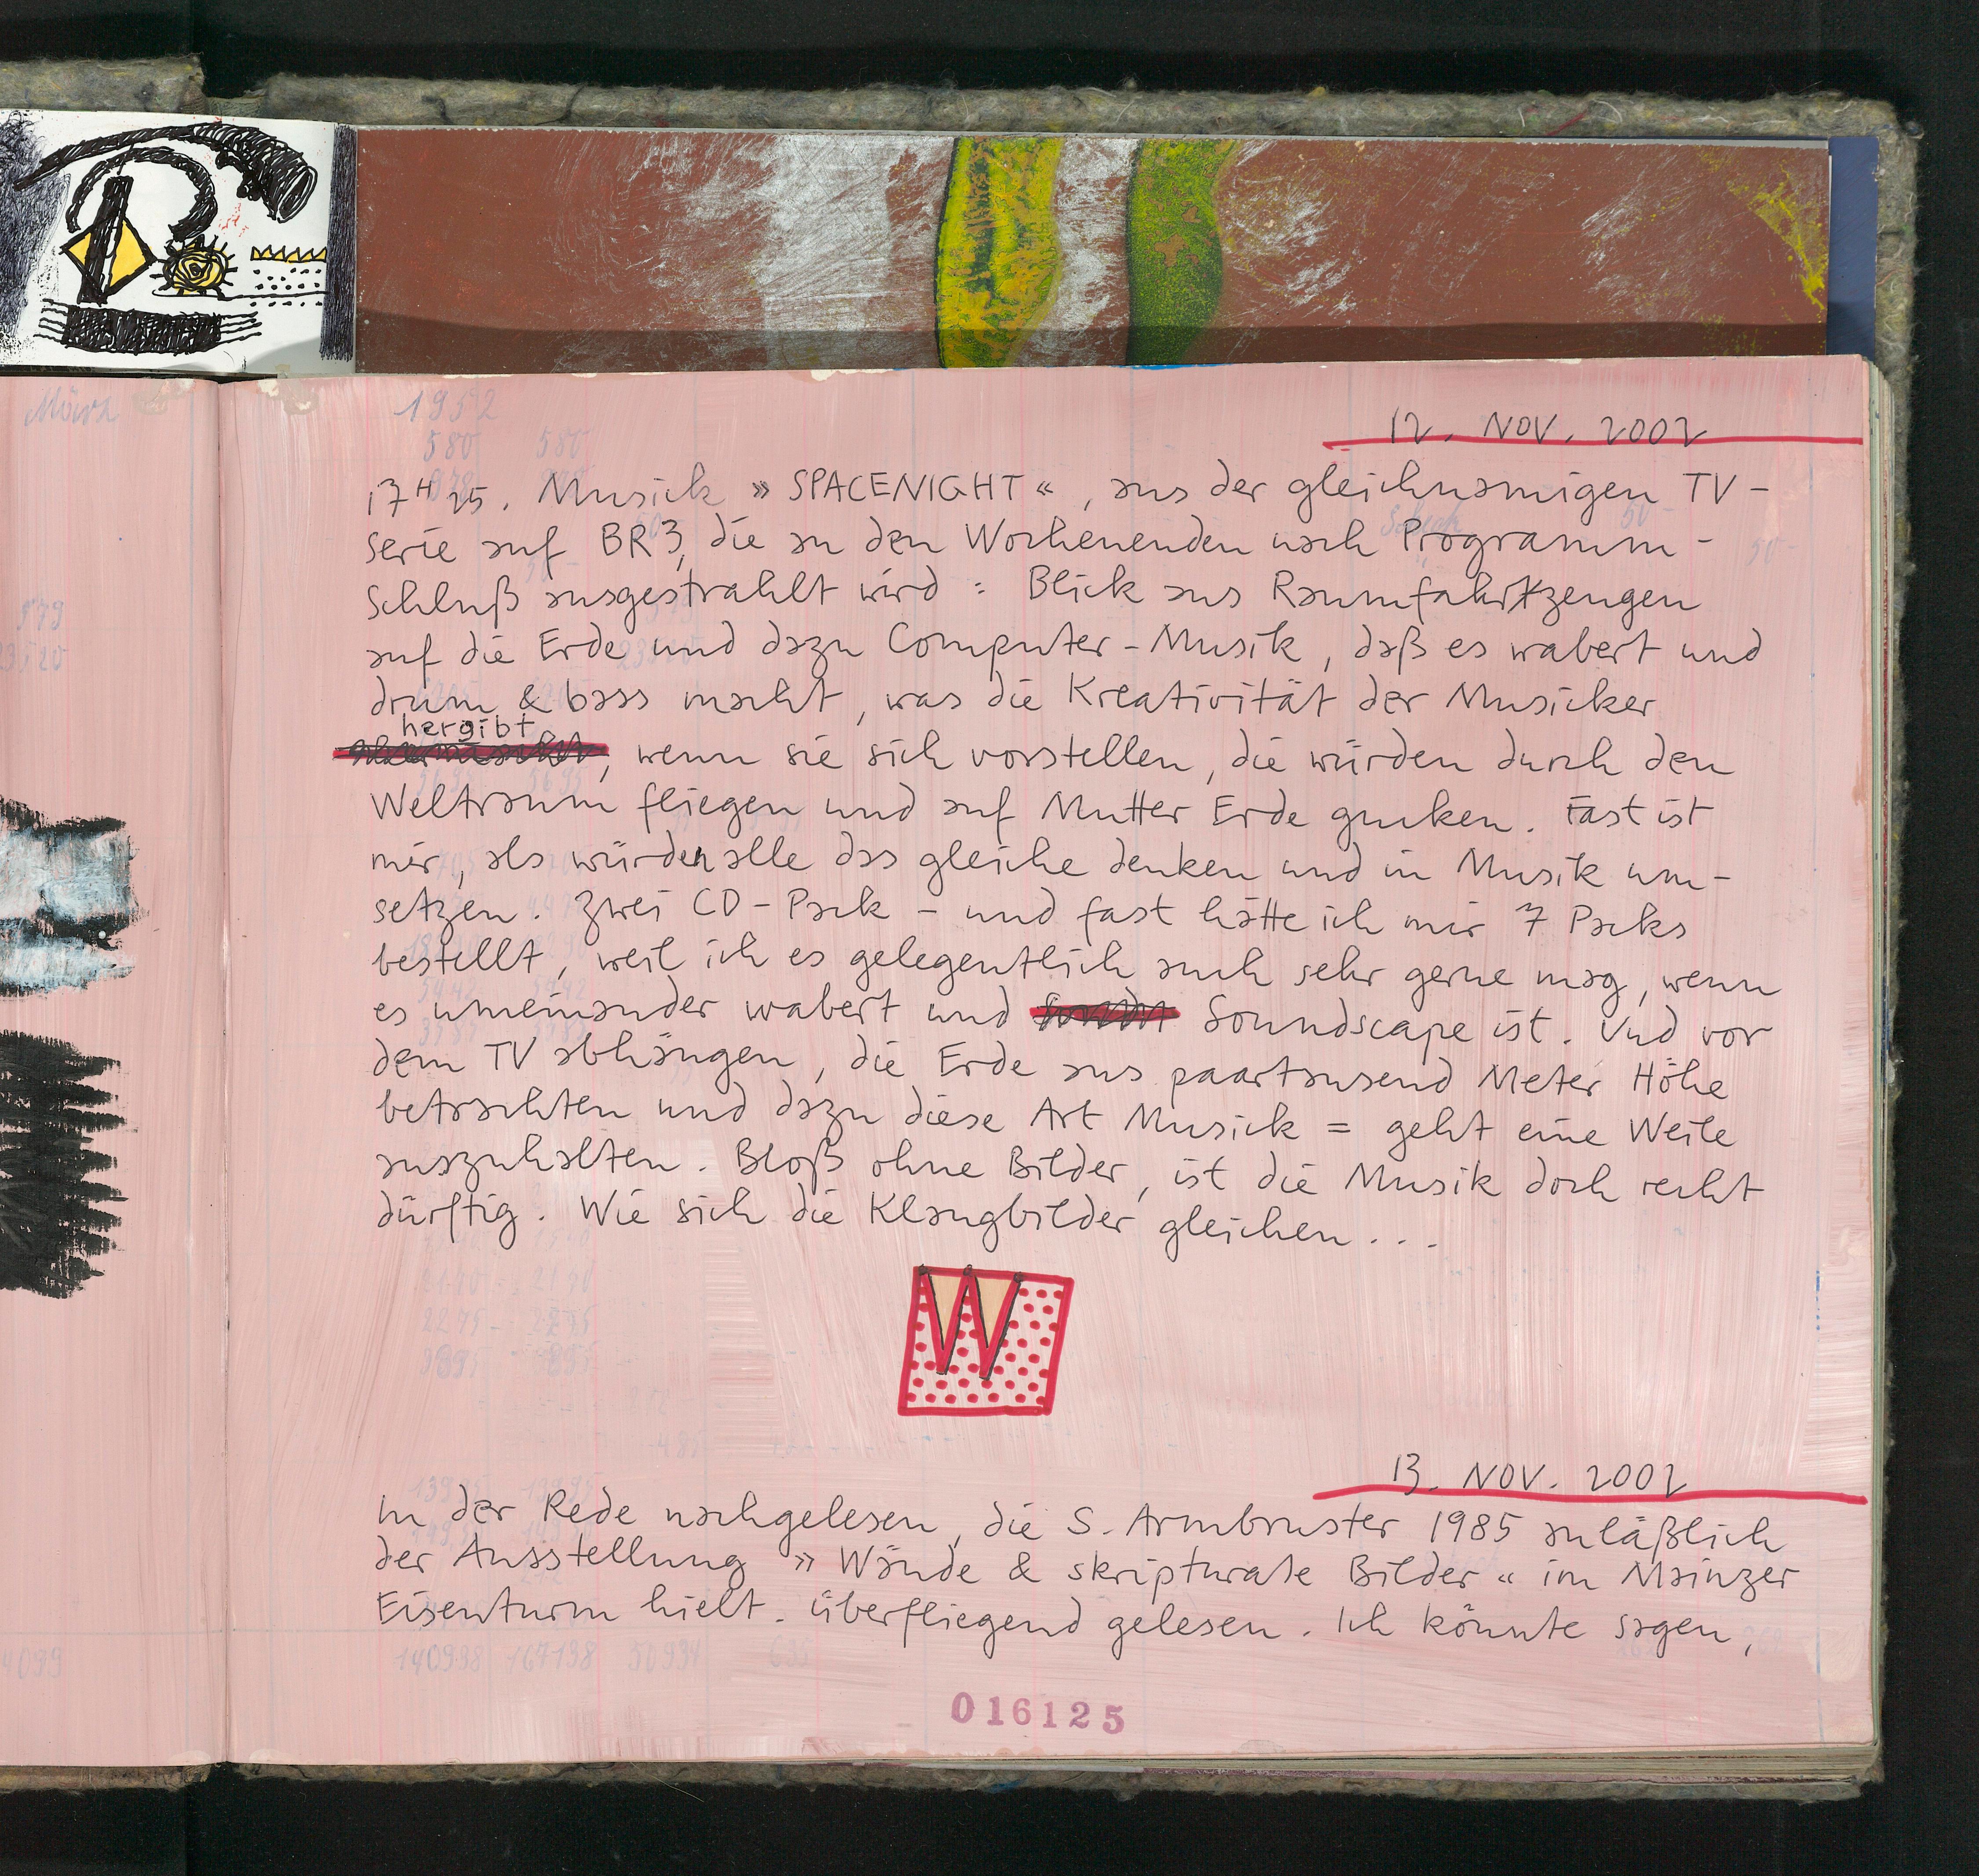 März
1952
580 580
12. NOV. 2002
17H25. Musick » SPACENIGHT «, aus der gleichnamigen TV-
serie auf BR3, die an den Wochenenden nach Programm-
Schluß ausgestrahlt wird : Blick aus Raumfahrtzeugen
auf die Erde und dazu Computer-Musik, daß es wabert und
drum & bass macht, was die Kreativität der Musicker
hergibt
, wenn sie sich vorstellen, die würden durch den
Weltraum fliegen und auf Mutter Erde gucken. Fast ist
mir, als würden alle das gleiche denken und in Musik um-
setzen. Zwei CD-Pack - und fast hätte ich mir 7 Packs
bestellt, weil ich es gelegentlich auch sehr gerne mag, wenn
es umeinander wabert und Soundscape ist. Und vor
dem TV abhängen, die Erde aus paartausend Meter Höhe
betrachten und dazu diese Art Musick = geht eine Weile
auszuhalten. Bloß ohne Bilder, ist die Musik doch recht
dürftig. Wie sich die Klangbilder gleichen...
W
13. NOV. 2002
In der Rede nachgelesen, die S. Armbruster 1985 anläßlich
der Ausstellung » Wände & skripturale Bilder « im Mainzer
Eisenturm hielt. überfliegend gelesen. Ich könnte sagen,
140998 167198 50994
016125